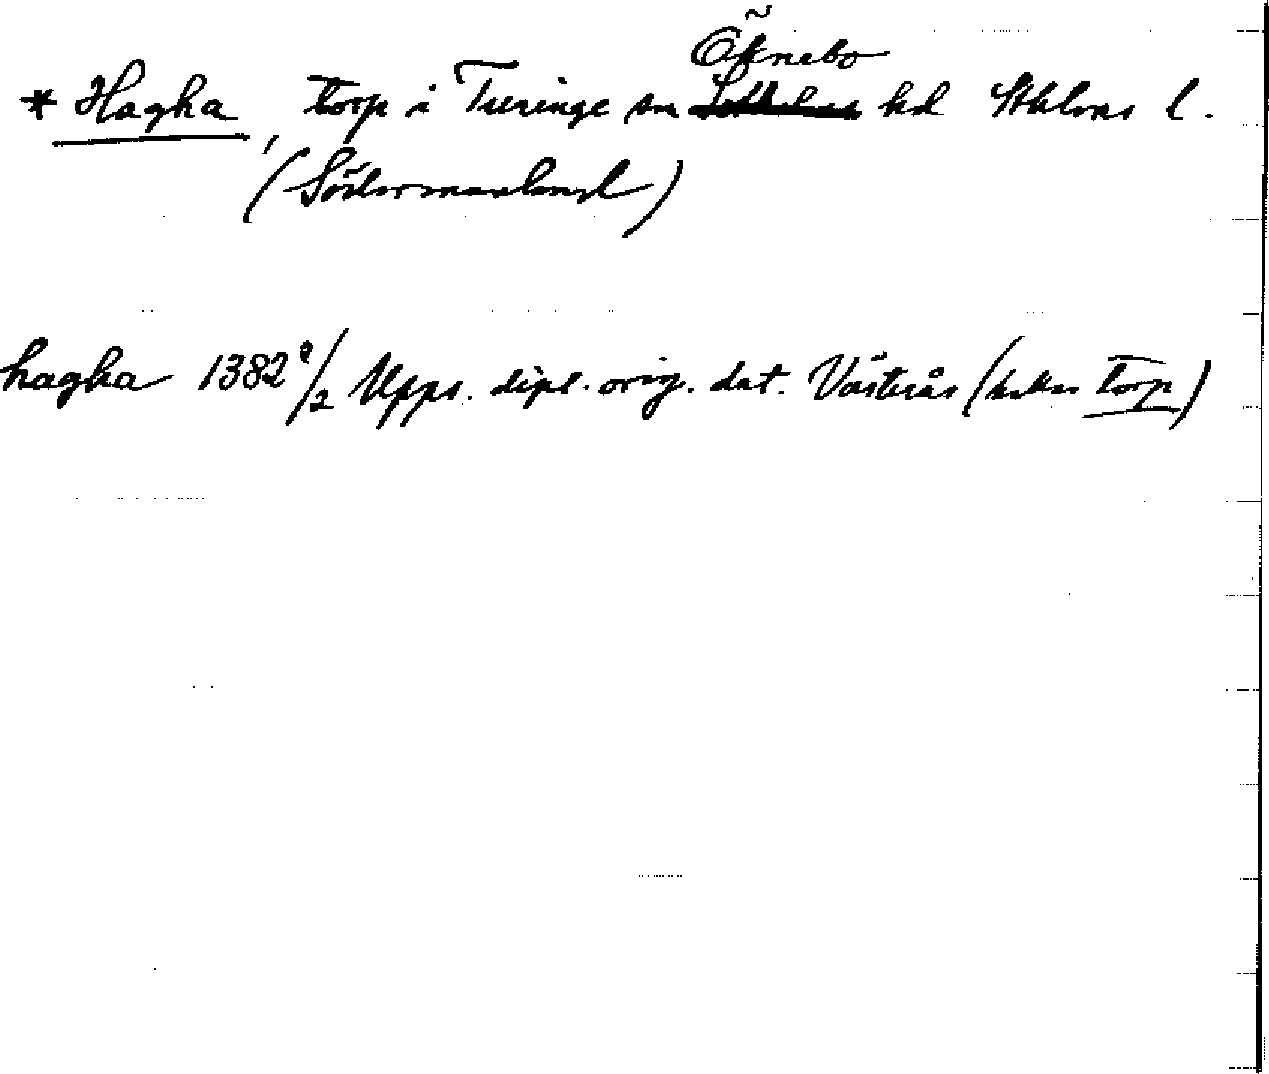 Öknebo
* Hagha, torp i Turinge sn hd Sthlms l.
(Södermanland)
hagha 1382 9/2 Upps. dipl. orig. dat. Västerås (kallas torp)